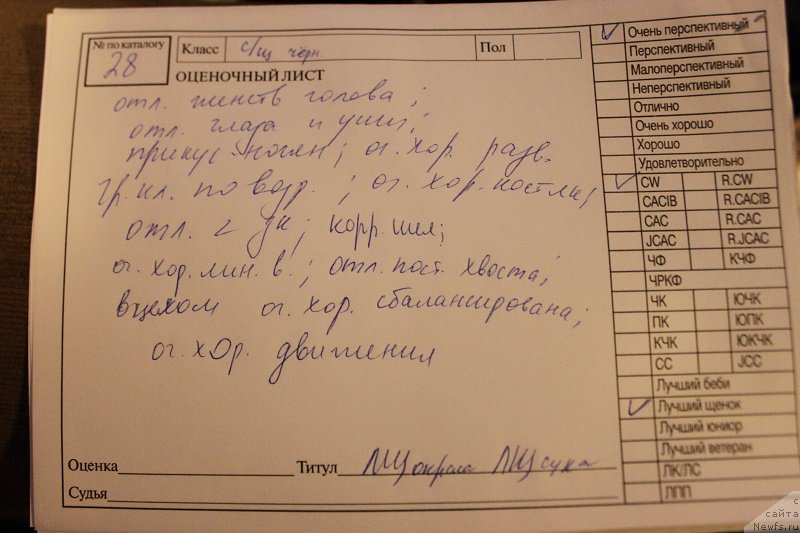 № по каталогу
28
Класс с/щ чёрн
Пол
ОЦЕНОЧНЫЙ ЛИСТ
отл. женств голова;
отл. глаза и уши;
прикус-ножн; оч. хор. разв.
гр. кл. по возр.; оч. хор. кост
отл. L ук; корр. шея;
оч. хор. лин. в.; отл. пост. хвоста;
вцелом оч. хор. сбалансирована;
оч. хор. движения
Оценка
Титул ЛЩ окраса ЛЩ сука
Судья
Очень перспективный
Перспективный
Малоперспективный
Неперспективный
Отлично
Очень хорошо
Хорошо
Удовлетворительно
CW R.CW
CACIB R.CACIB
CAC R.CAC
JCAC R.JCAC
ЧФ КЧФ
ЧРКФ
ЧК ЮЧК
ПК ЮПК
КЧК ЮКЧК
СС JCC
Лучший беби
Лучший щенок
Лучший юниор
Лучший ветеран
ЛК/ЛС
ЛПП
с
сайта
Newfs.ru